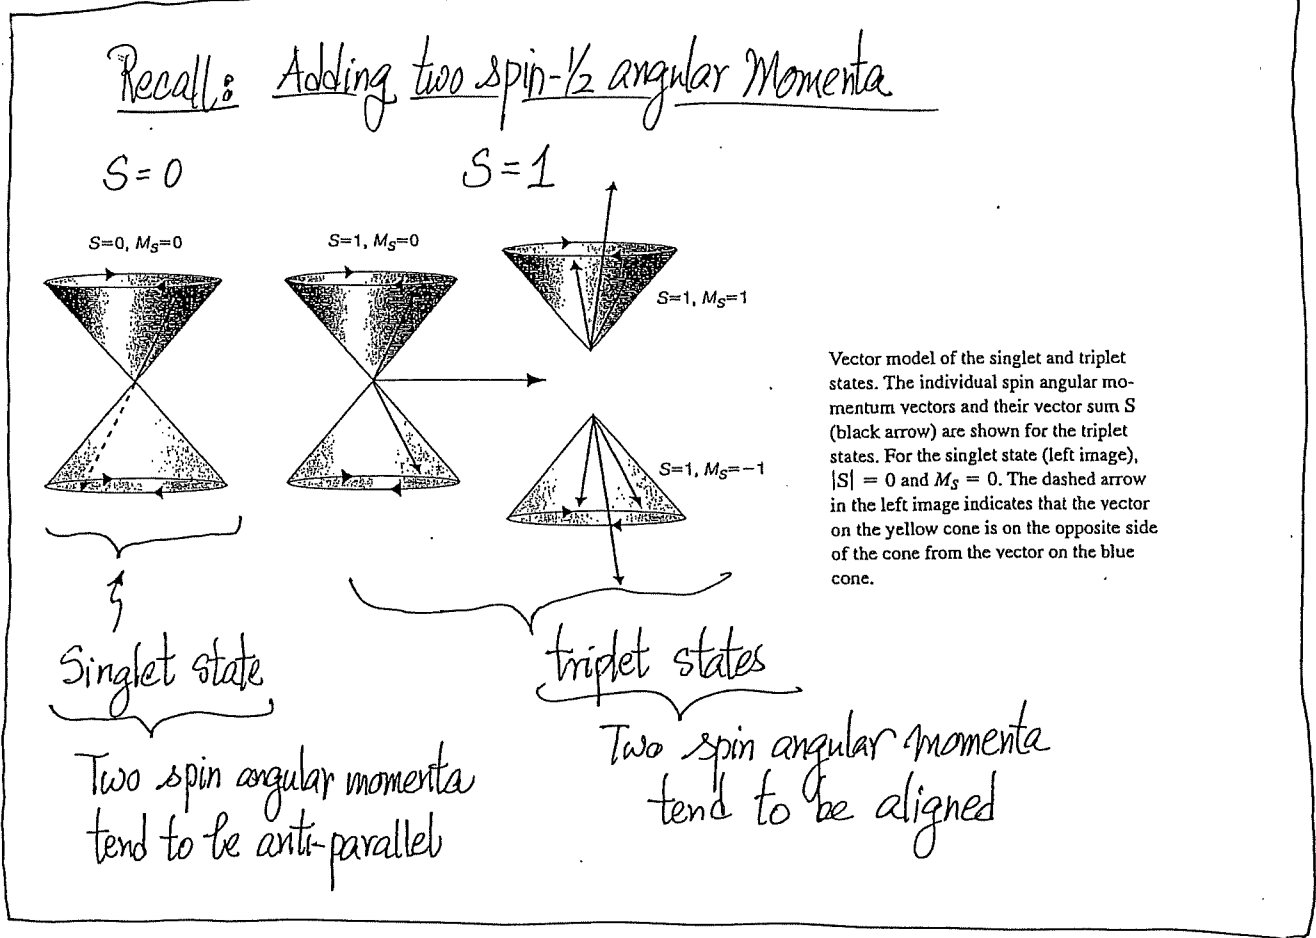 Recall: Adding two spin-1/2 angular Momenta
S=0
S=1
S=0, M_S=0
S=1, M_S=0
S=1, M_S=1
S=1, M_S=−1
Vector model of the singlet and triplet
states. The individual spin angular mo-
mentum vectors and their vector sum S
(black arrow) are shown for the triplet
states. For the singlet state (left image),
|S| = 0 and M_S = 0. The dashed arrow
in the left image indicates that the vector
on the yellow cone is on the opposite side
of the cone from the vector on the blue
cone.
Singlet state
triplet states
Two spin angular momenta
tend to be anti-parallel
Two spin angular momenta
tend to be aligned